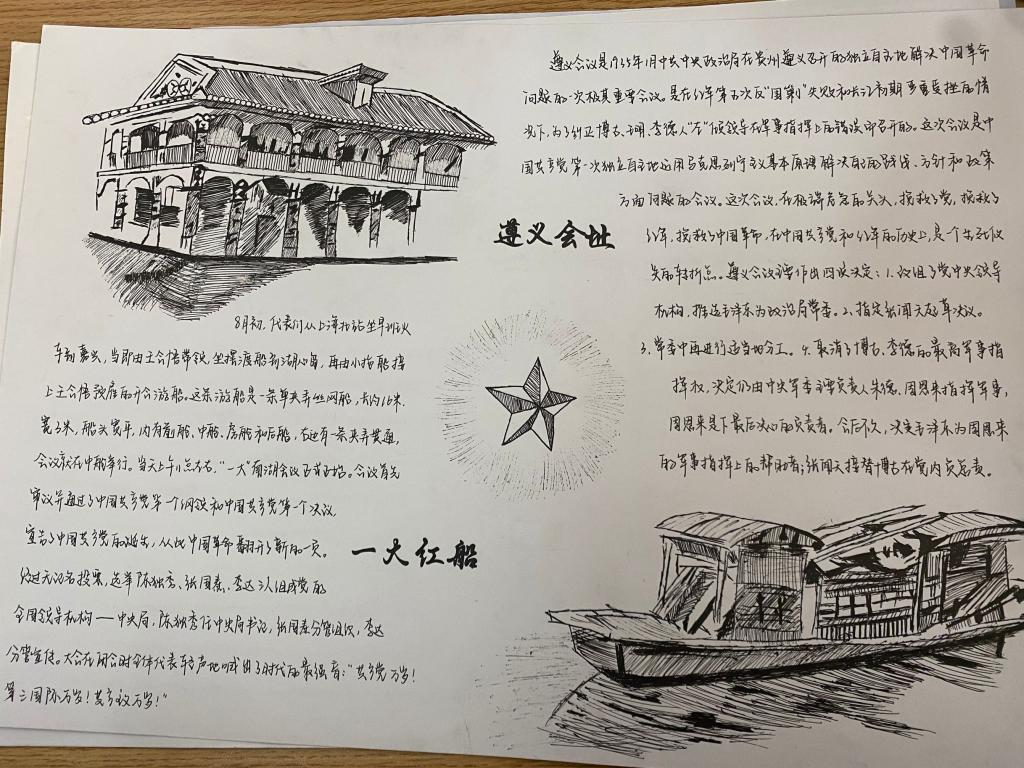 遵义会议是1935年1月中共中央政治局在贵州遵义召开的独立自主地解决中国革命
问题的一次极其重要会议。是在红军第五次反“围剿”失败和长征初期严重受挫的情
况下,为了纠正博古、王明、李德人“左”倾领导在军事指挥上的错误而召开的。这次会议是中
国共产党第一次独立自主地运用马克思列宁主义基本原理解决自己的路线、方针和政策
方面问题的会议。这次会议,在极端危急的关头,挽救了党,挽救了
红军,挽救了中国革命,在中国共产党和红军的历史上,是一个生死攸
关的转折点。遵义会议作出四项决定:1.改组了党中央领导
机构,推选毛泽东为政治局常委。2、指定张闻天起草决议。
3.常委中再进行适当地分工。4.取消了博古、李德的最高军事指
挥权,决定仍由中央军委主要负责人朱德,周恩来指挥军事,
周恩来是下最后决心的负责者。会后不久,决定毛泽东为周恩来
的军事指挥上的帮助者;张闻天接替博古在党内负总责。
遵义会址
8月初,代表们从上海北站坐早列火
车到嘉兴,当即由王会悟带领,坐摆渡船到湖心岛,再由小拖船接
上王会悟预雇的开会游船。这条游船是一条单夹弄丝网船,长约16米,
宽3米,船头宽平,内有前舱、中舱、房舱和后舱,右边有一条夹弄贯通,
会议就在中舱举行。当天上午11点左右,“一大”南湖会议正式开始。会议首先
审议并通过了中国共产党第一个纲领和中国共产党第一个决议,
宣告了中国共产党的诞生,从此中国革命翻开了新的一页。
一大红船
经过无记名投票,选举陈独秀、张国焘、李达3人组成党的
全国领导机构——中央局,陈独秀任中央局书记,张国焘分管组织,李达
分管宣传。大会在闭会时全体代表轻声地喊出了时代的最强音:“共产党万岁!
第三国际万岁!共产主义万岁!”